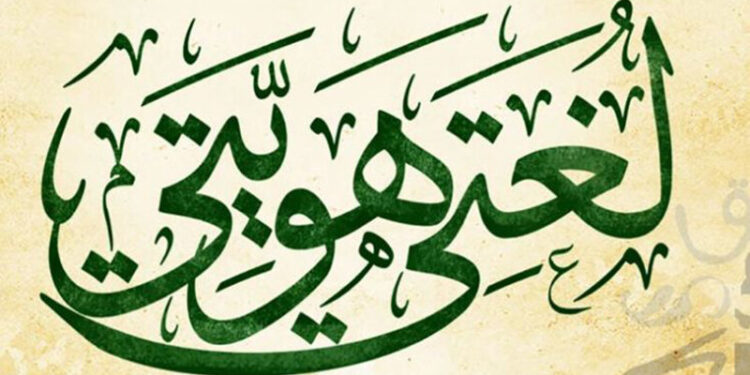 لُغتي هويّتي